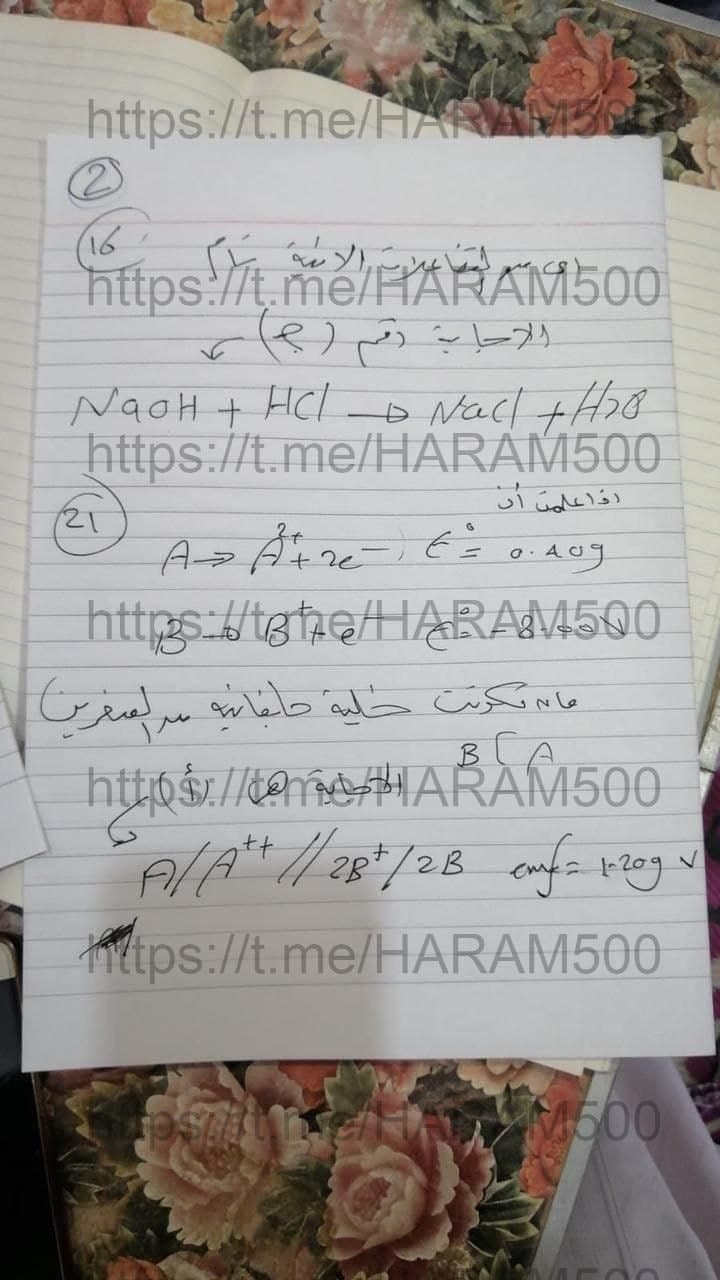 https://t.me/HARAM500
2
16
اى من التفاعلات الاتية تام
https://t.me/HARAM500
الاجابة رقم (ج)
NaOH + HCl → NaCl + H2O
https://t.me/HARAM500
21
اذا علمت أن
A → A2+ + 2e- , E° = 0.409
https://t.me/HARAM500
B → B+ + e- E° = -8.00 V
تكونت خلية جلفانية من العنصرين
B [ A
الاجابة هى (أ)
https://t.me/HARAM500
A/A++//2B+/2B emf = 1.209 V
https://t.me/HARAM500
https://t.me/HARAM500
https://t.me/HARAM500